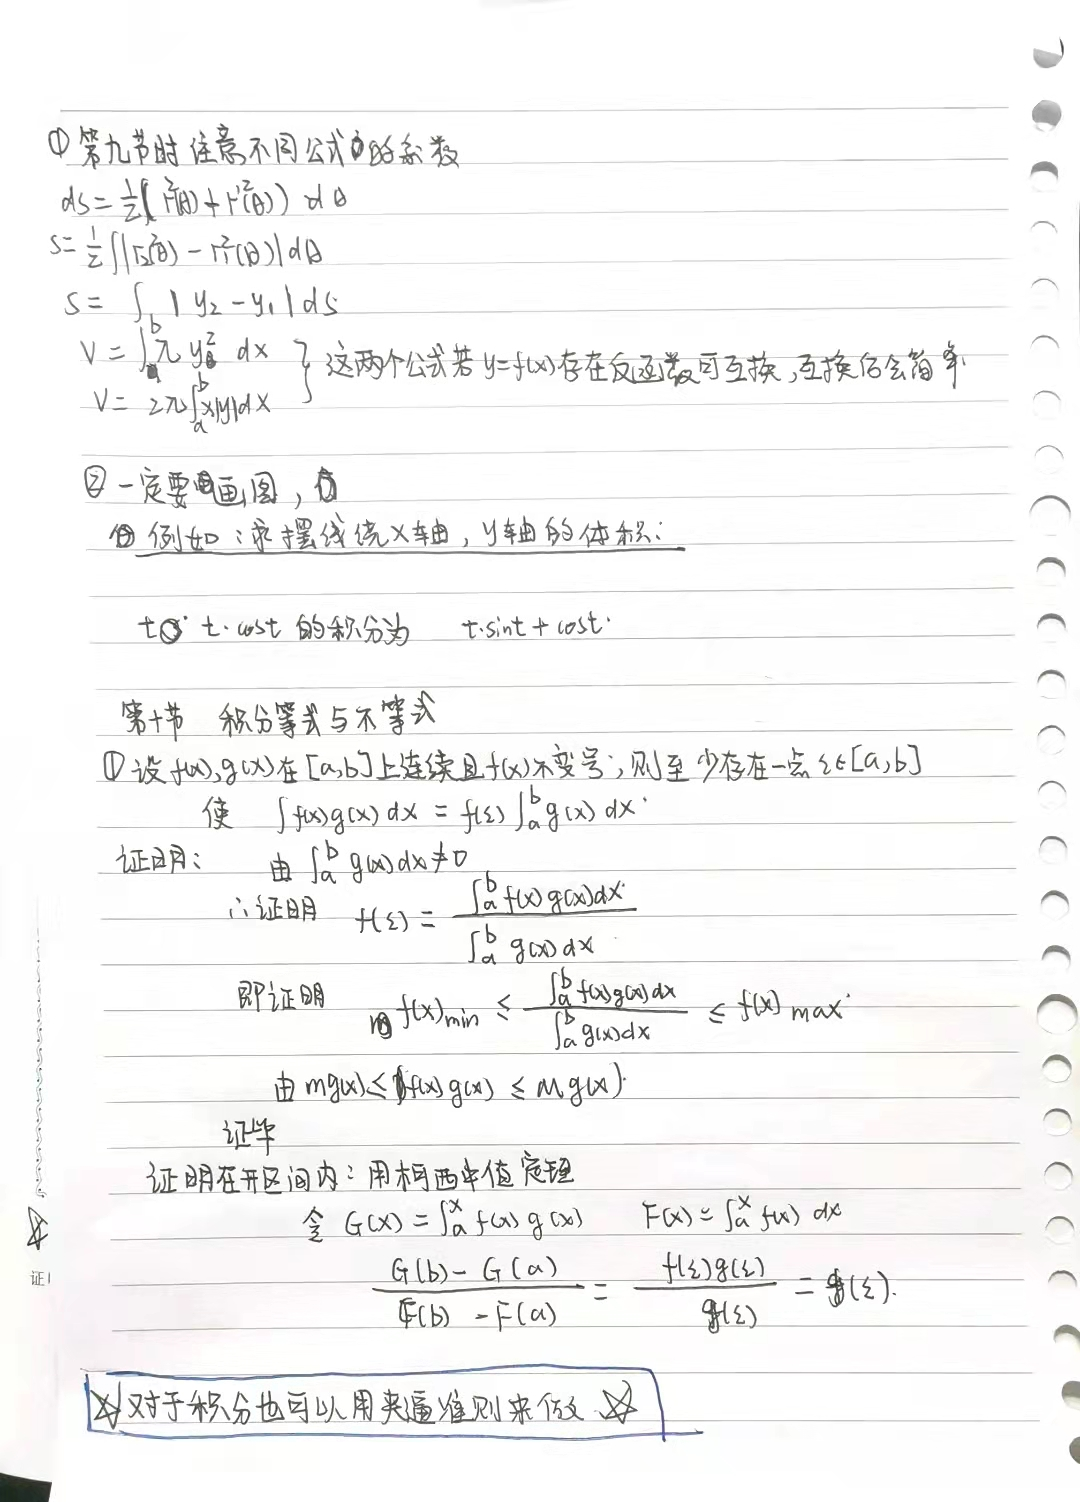 ① 第九节时注意不同公式的系数
ds = 1/2 (r²(θ) + r'²(θ)) dθ
S = 1/2 ∫|r₂²(θ) - r₁²(θ)|dθ
S = ∫ | y₂ - y₁ | ds
V = ∫ₐᵇ π y² dx
这两个公式若y=f(x)存在反函数可互换,互换后会简单
V = 2π∫ₐᵇ x|y|dx
② 一定要画图,
例如:求摆线绕x轴,y轴的体积:
t·cost 的积分为 t·sint + cost·
第十节 积分等式与不等式
① 设f(x), g(x) 在 [a,b] 上连续且f(x)不变号,则至少存在一点 ξ∈[a,b]
使 ∫f(x)g(x) dx = f(ξ) ∫ₐᵇ g(x) dx
证明: 由 ∫ₐᵇ g(x)dx ≠ 0
∴证明 f(ξ) = ∫ₐᵇ f(x)g(x)dx / ∫ₐᵇ g(x)dx
即证明 f(x)min ≤ ∫ₐᵇ f(x)g(x)dx / ∫ₐᵇ g(x)dx ≤ f(x)max
由 mg(x) ≤ f(x)g(x) ≤ Mg(x)
证毕
证明在开区间内:用柯西中值定理
令 G(x) = ∫ₐˣ f(x)g(x) F(x) = ∫ₐˣ f(x) dx
G(b) - G(a) / F(b) - F(a) = f(ξ)g(ξ) / f(ξ) = g(ξ).
证
☆对于积分也可以用夹逼准则来做☆